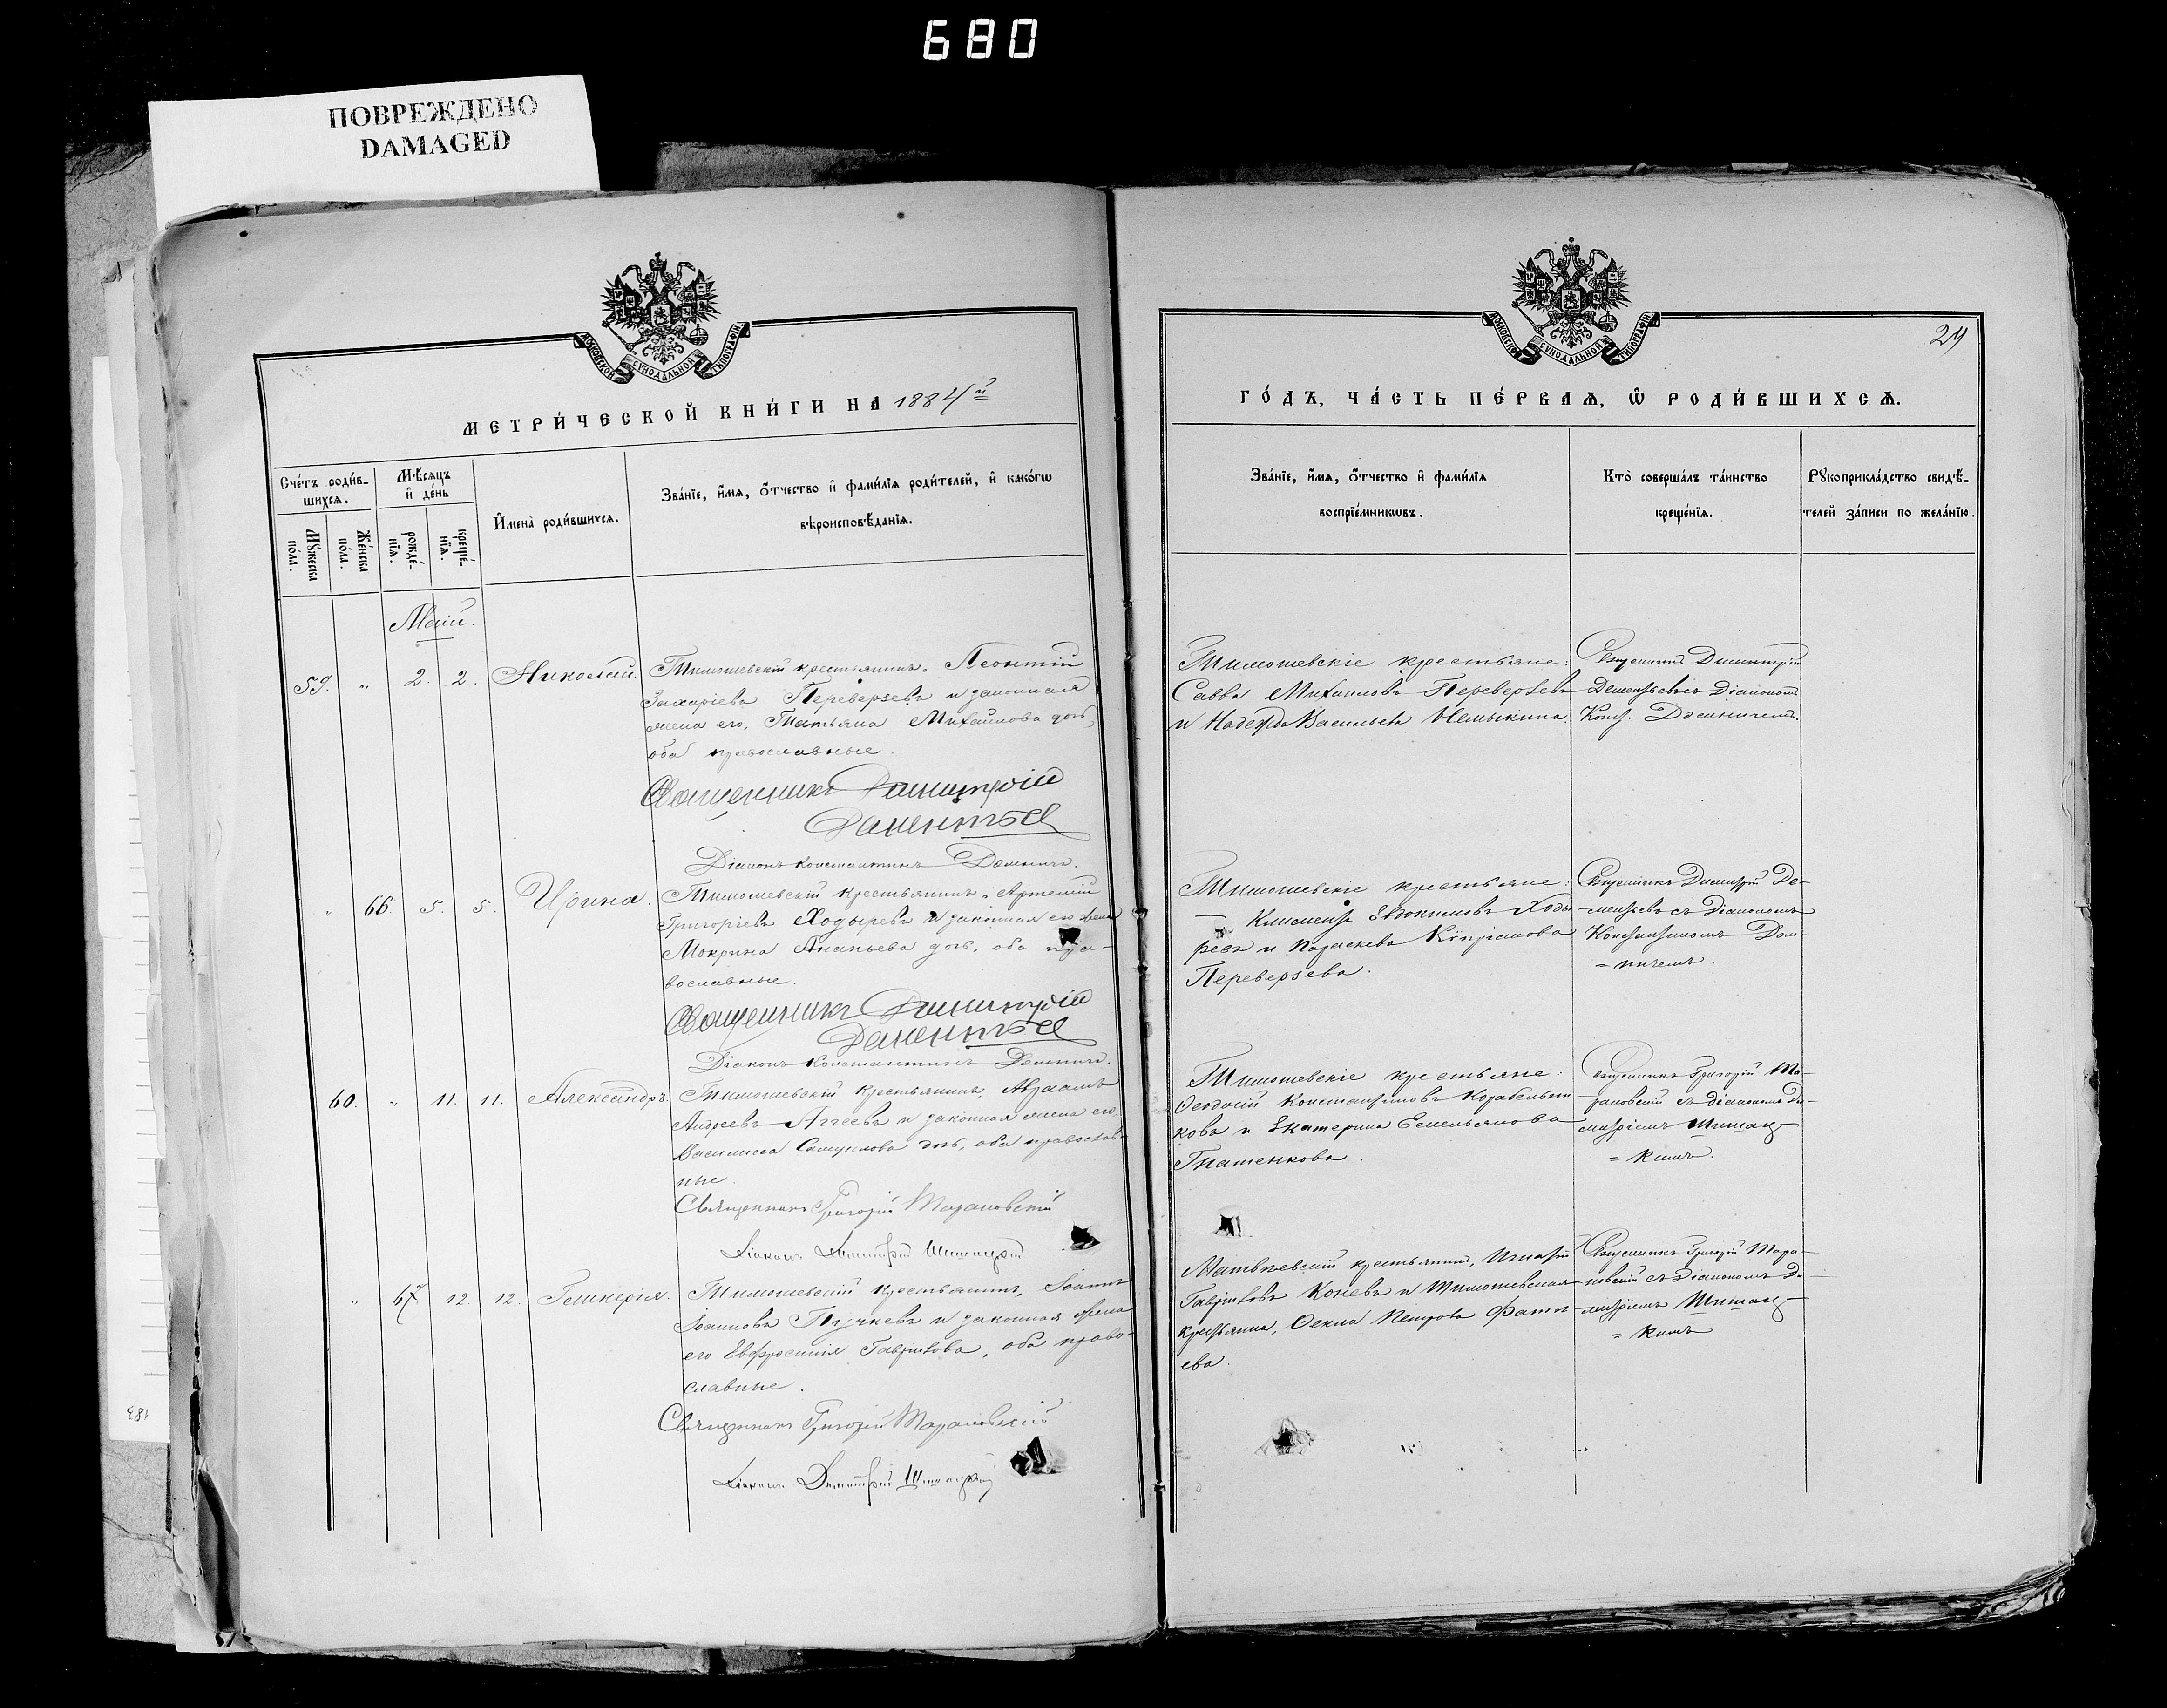 680
ПОВРЕЖДЕНО
DAMAGED
МОСКОВСКОЙ СУНОДАЛЬНОЙ ТИПОГРАФІИ
МЕТРИ́ЧЕСКОЙ КНИ́ГИ НА 1884й
Сче́тъ роди́в-
шихсѧ.
Мꙋ́жеска по́ла.
Же́нска по́ла.
Мѣ́сяцъ и҆ де́нь
рожде́-нїѧ.
креще́-нїѧ.
И҆мена̀ роди́вшихсѧ.
Зва́нїе, и҆́мѧ, ѻ҆́тчество и҆ фами́лїѧ роди́телей, и҆ како́гѡ
вѣроисповѣ́данїѧ.
Май.
59. " 2. 2. Николай.
Тимошевскій крестьянинъ. Леонтій
Захаріевъ Переверзевъ и законная
жена его, Татьяна Михайлова дочь,
оба православные.
Священникъ Димитрій
Дементьев
Діаконъ Константинъ Домничъ.
" 66. 5. 5. Ирина.
Тимошевскій крестьянинъ, Артемій
Григорьевъ Ходыревъ и законная его жена
Мокрина Ананьева дочь, оба пра-
вославные.
Священникъ Димитрій
Дементьев
Діаконъ Константинъ Домничъ.
60. " 11. 11. Александръ.
Тимошевскій крестьянинъ, Авраамъ
Андреевъ Агеевъ и законная жена его
Василиса Самуилова дочь, оба православ-
ные.
Священникъ Григорій
Діаконъ Димитрій
" 67 12. 12. Гликерія.
Тимошевскій крестьянинъ, Іоаннъ
Іоанновъ и законная жена
его Евфросинія Гаврилова, оба право-
славные.
Священникъ Григорій
Діаконъ Димитрій
МОСКОВСКОЙ СУНОДАЛЬНОЙ ТИПОГРАФІИ
29
ГО́ДЪ, ЧА́СТЬ ПЕ́РВАѦ, Ѡ҆ РОДИ́ВШИХСѦ.
Зва́нїе, и҆́мѧ, ѻ҆́тчество и҆ фами́лїѧ
воспрїе́мникѡвъ.
Кто̀ соверша́лъ та́инство
креще́нїѧ.
Рꙋкоприкла́дство свидѣ́-
телей за́писи по жела́нїю.
Тимошевскіе крестьяне:
Савва Михаиловъ Переверзевъ
и Надежда Васильева
Священникъ Димитрій
Дементьевъ съ Діакономъ
Конст. Домничемъ.
Тимошевскіе крестьяне:
— Климентъ Евдокимовъ Ходы
ревъ и Параскева Кипріанова
Переверзева.
Священникъ Димитрій Де-
ментьевъ съ діакономъ
Константиномъ Дом-
=ничемъ.
Тимошевскіе крестьяне:
Ѳеодосій Константиновъ Корабельни
ковъ и Екатерина Емельянова
Гнатенкова.
Священникъ Григорій
съ діакономъ Ди-
митріемъ
= кимъ.
Матвѣевскій крестьянинъ, Игнатій
Гавриловъ Коневъ и Тимошевская
крестьянка, Ѳекла Петрова
ева.
Священникъ Григорій
съ діакономъ Ди-
митріемъ
= кимъ